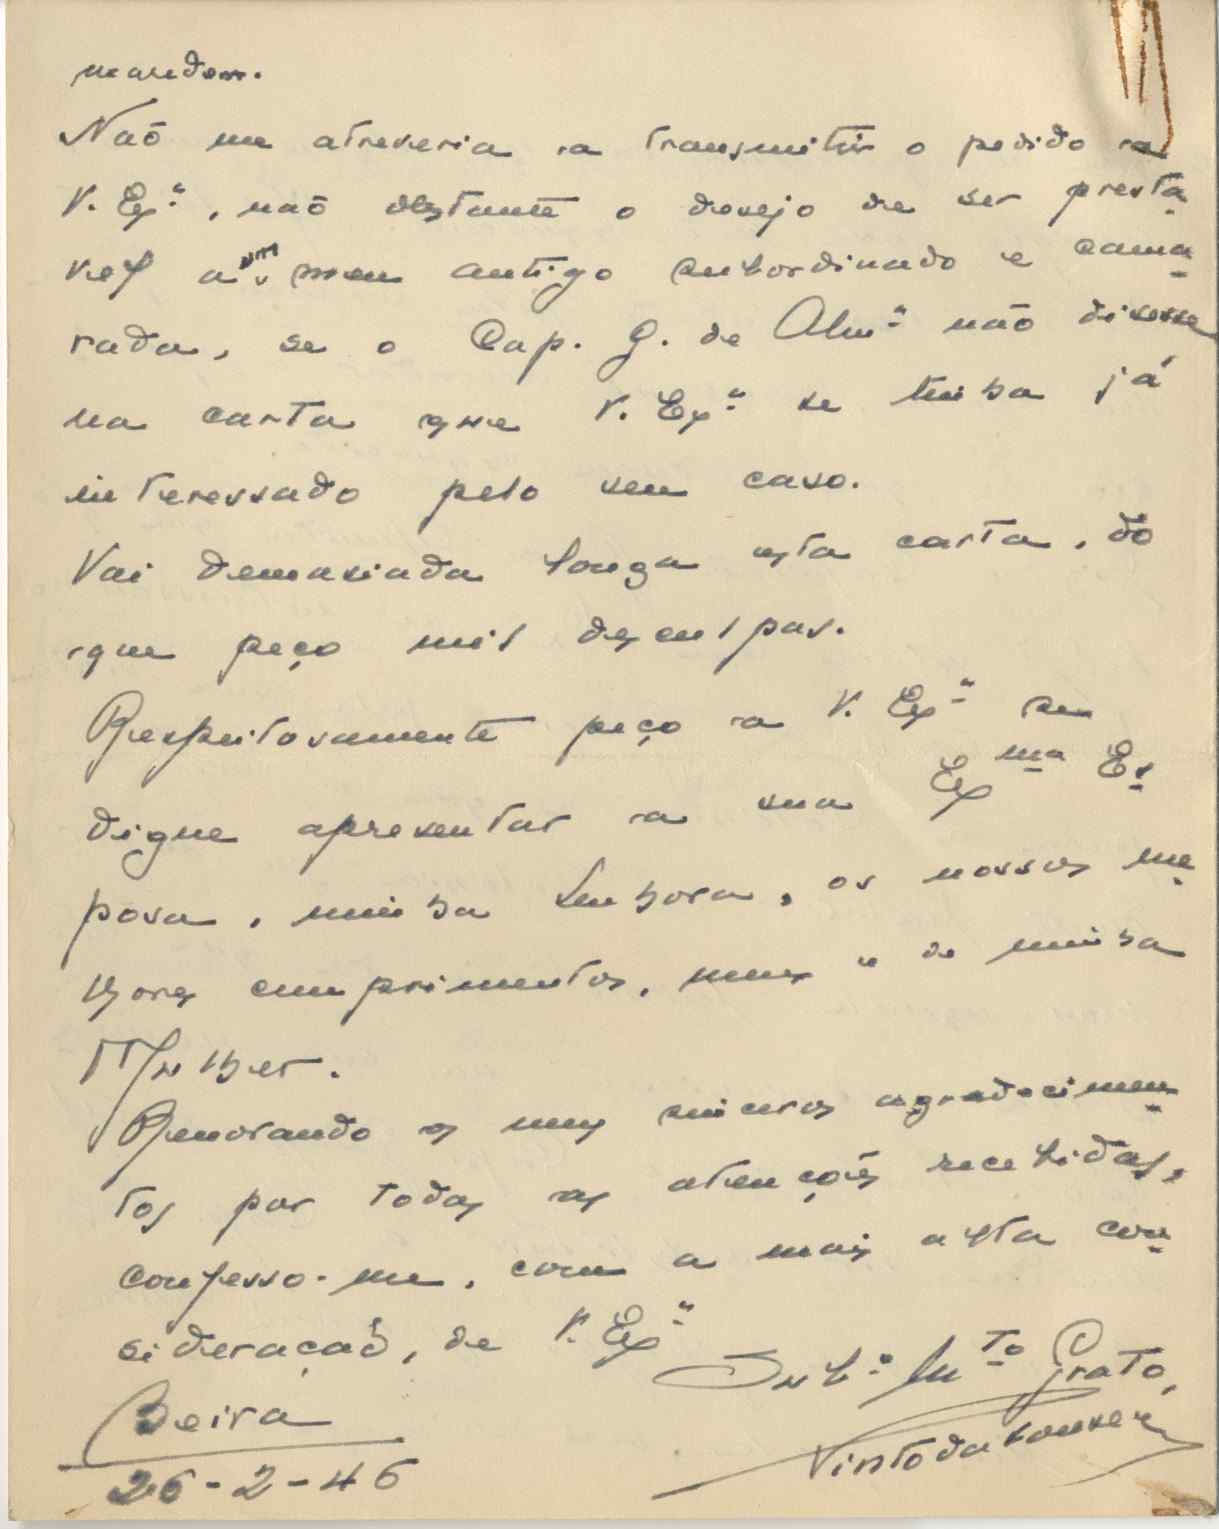 mandou.
Não me atreveria a transmitir o pedido a
V. Exª, não obstante o desejo de ser prestá-
vel a um meu antigo subordinado e cama-
rada, se o Cap. G. de Almª não dissesse
na carta que V. Exª se tinha já
interessado pelo seu caso.
Vai demasiada longa esta carta, do
que peço mil desculpas.
Respeitosamente peço a V. Exª se
digne apresentar a sua Exma Es-
posa, minha Senhora, os nossos me-
lhores cumprimentos, meus e de minha
Mulher.
Renovando os meus sinceros agradecimen-
tos por todas as atenções recebidas,
confesso-me, com a mais alta con-
sideração, de V. Exª
Subº Mto Grato,
Pinto da Fonseca
Beira
26-2-46